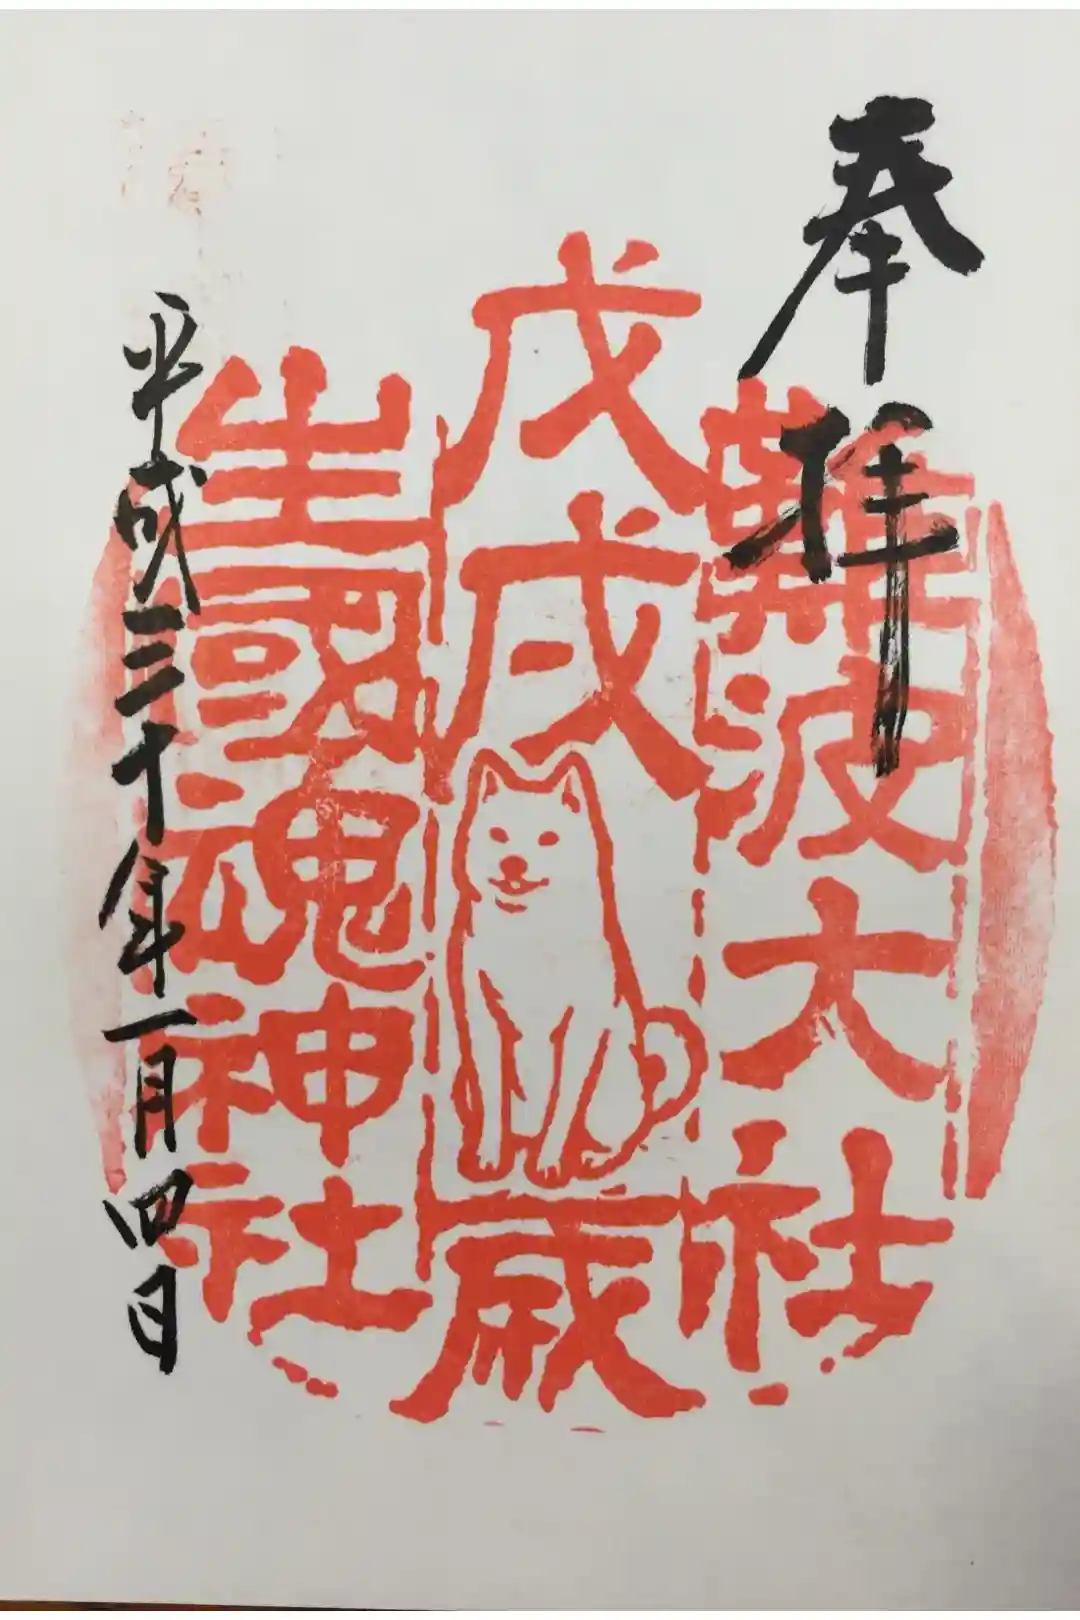 奉拝
難波大社
戊戌歳
生國魂神社
平成三十年一月四日